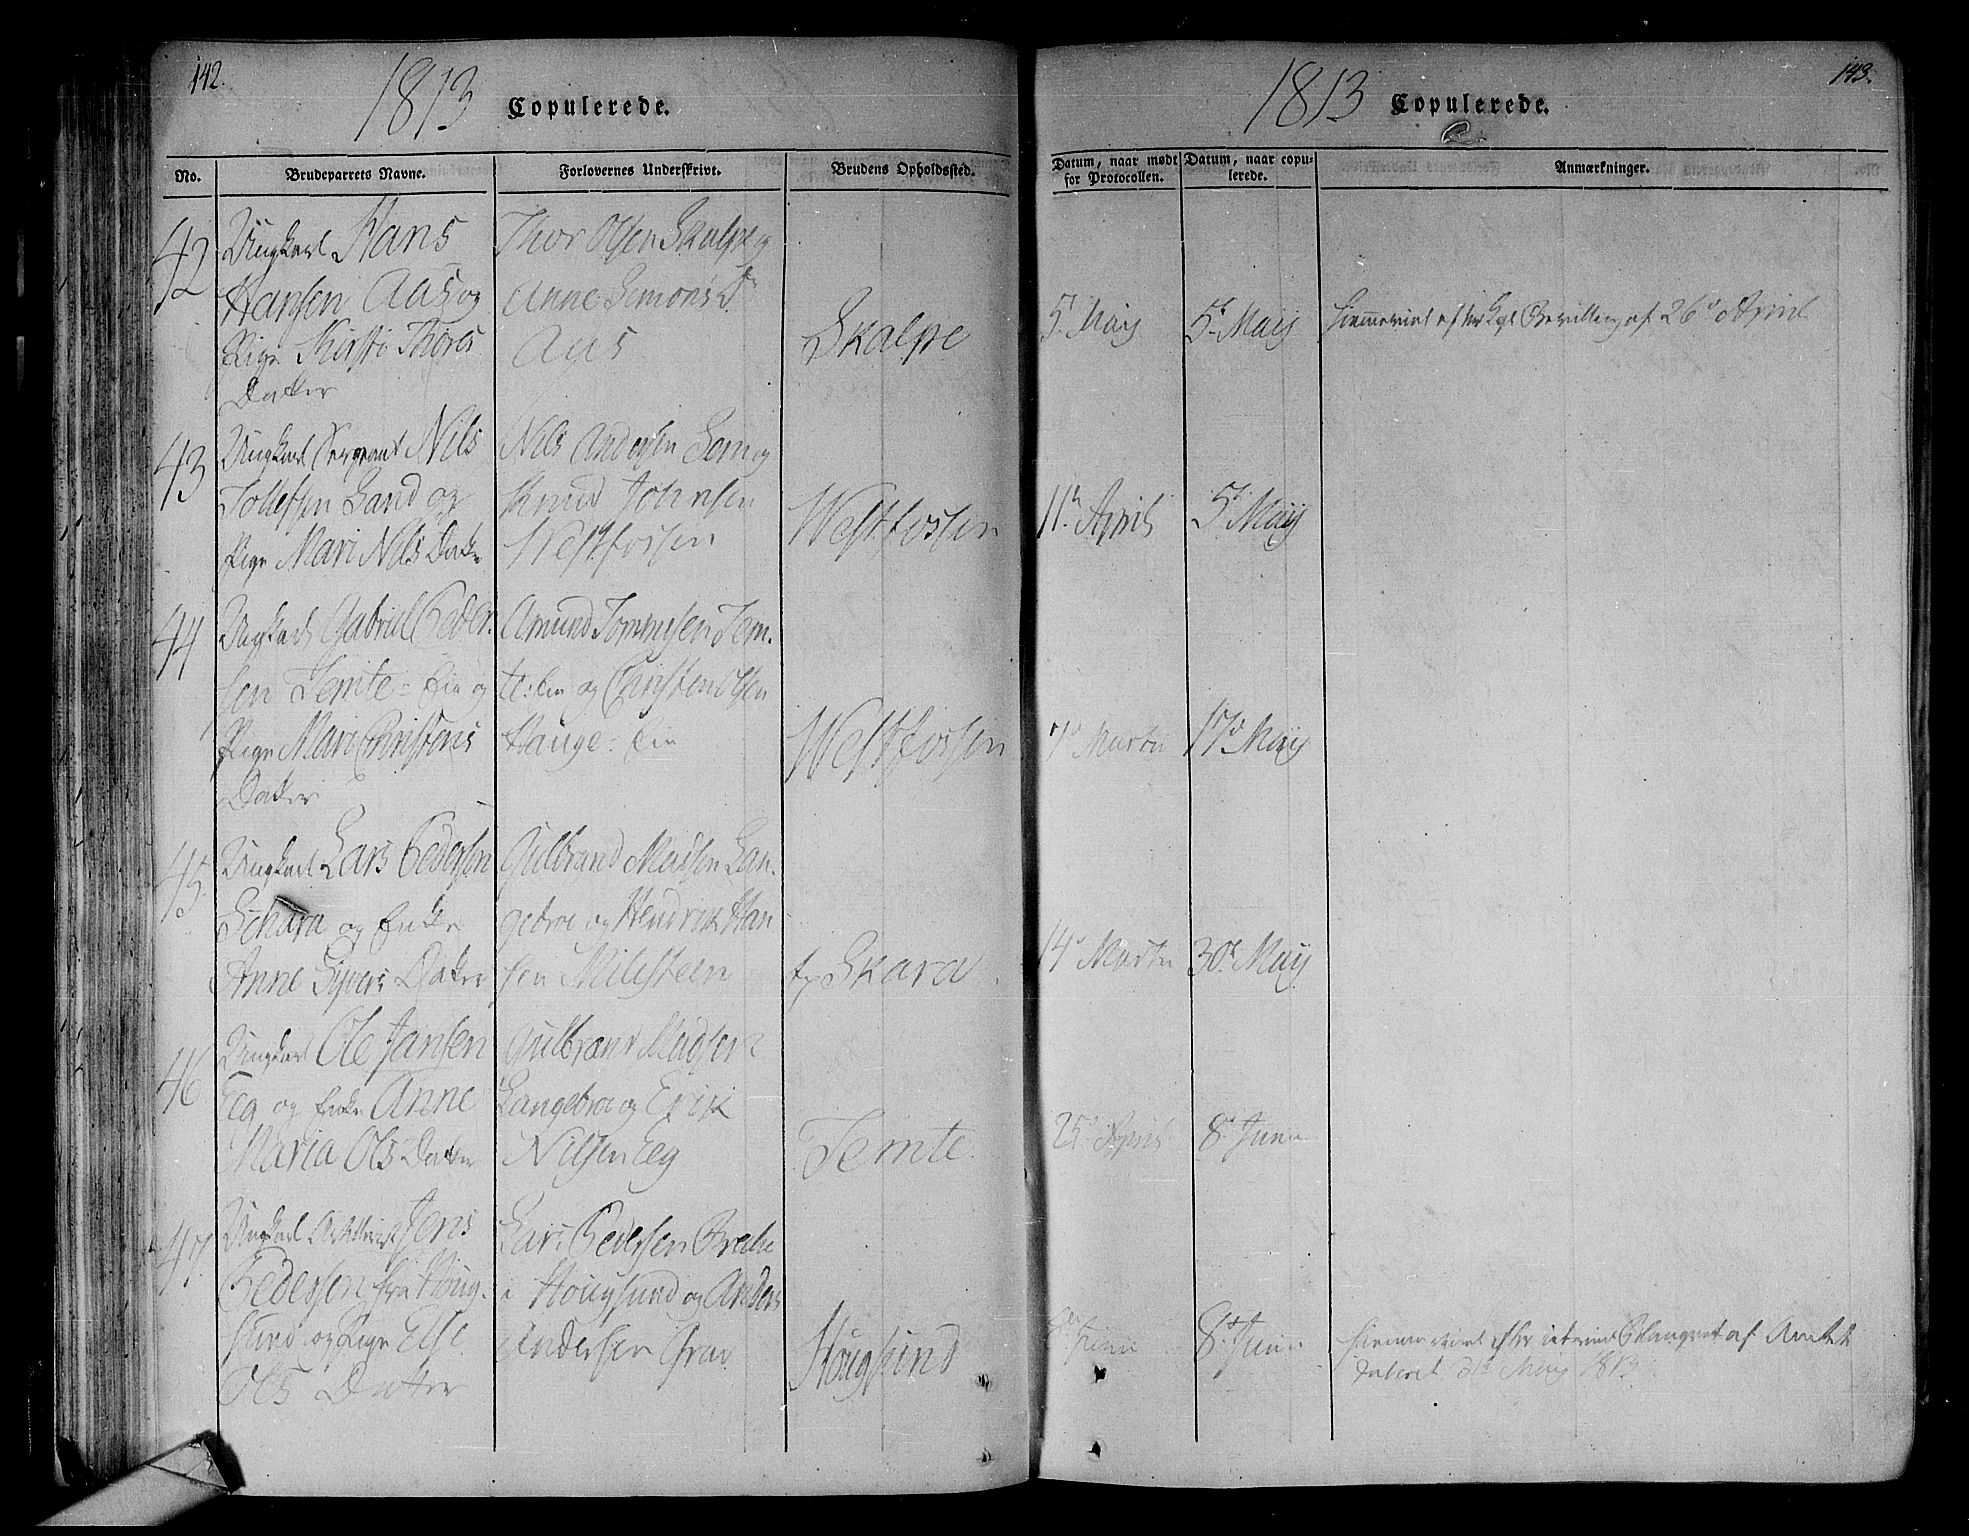 142.
1813 Copulerede.
No. Brudeparrets Navne. Forlovernes Underskrivt. Brudens Opholdssted.
42
Ungkarl Hans
Hansen Aas og
Pige Kirsti Thores
Datter
Thor Olsen Skalpe og
Anne Simons Dr
Aas
Skalpe
43
Ungkarl Sergeant Nils
Tollefsen Sand og
Pige Mari Nils Datter
Nils Andersen Sem og
Knud Johnsen
Westfossen
Westfossen
44
Ungkarl Gabriel Peder-
sen Temte-Eie og
Pige Mari Christens
Datter
Amund Tommesen Tem-
te-Eie og Christen Olsen
Hauge-Eie
Westfossen
45
Ungkarl Lars Pedersen
Schara og Enke
Anne Sivers Datter
Gulbrand Madsen Lan-
gebroe og Hendrik Han
sen Milesteen
Skara
46
Ungkarl Ole Jansen
Eeg og Enke Anne
Maria Ols Datter
Gulbrand Madsen
Langebroe og Erik
Nilsen Eeg
Temte
47
Ungkarl Artillerist Jens
Pedersen fra Houg-
sund og Pige Else
Ols Datter
Lars Pedersen Breche
i Hougsund og Anders
Andersen Grav
Hougsund
143.
1813 Copulerede.
Datum, naar mødt for Protocollen. Datum, naar copu-
lerede. Anmærkninger.
5 May 5 May Hiemmeviet efter Kgl Bevilling af 26 April
11 April 5 May
7 Martii 17 May
14 Martii 30 May
25 April 8 Junii
8 Junii 8 Junii Hiemmeviet efter af Amtet
dateret May 1813